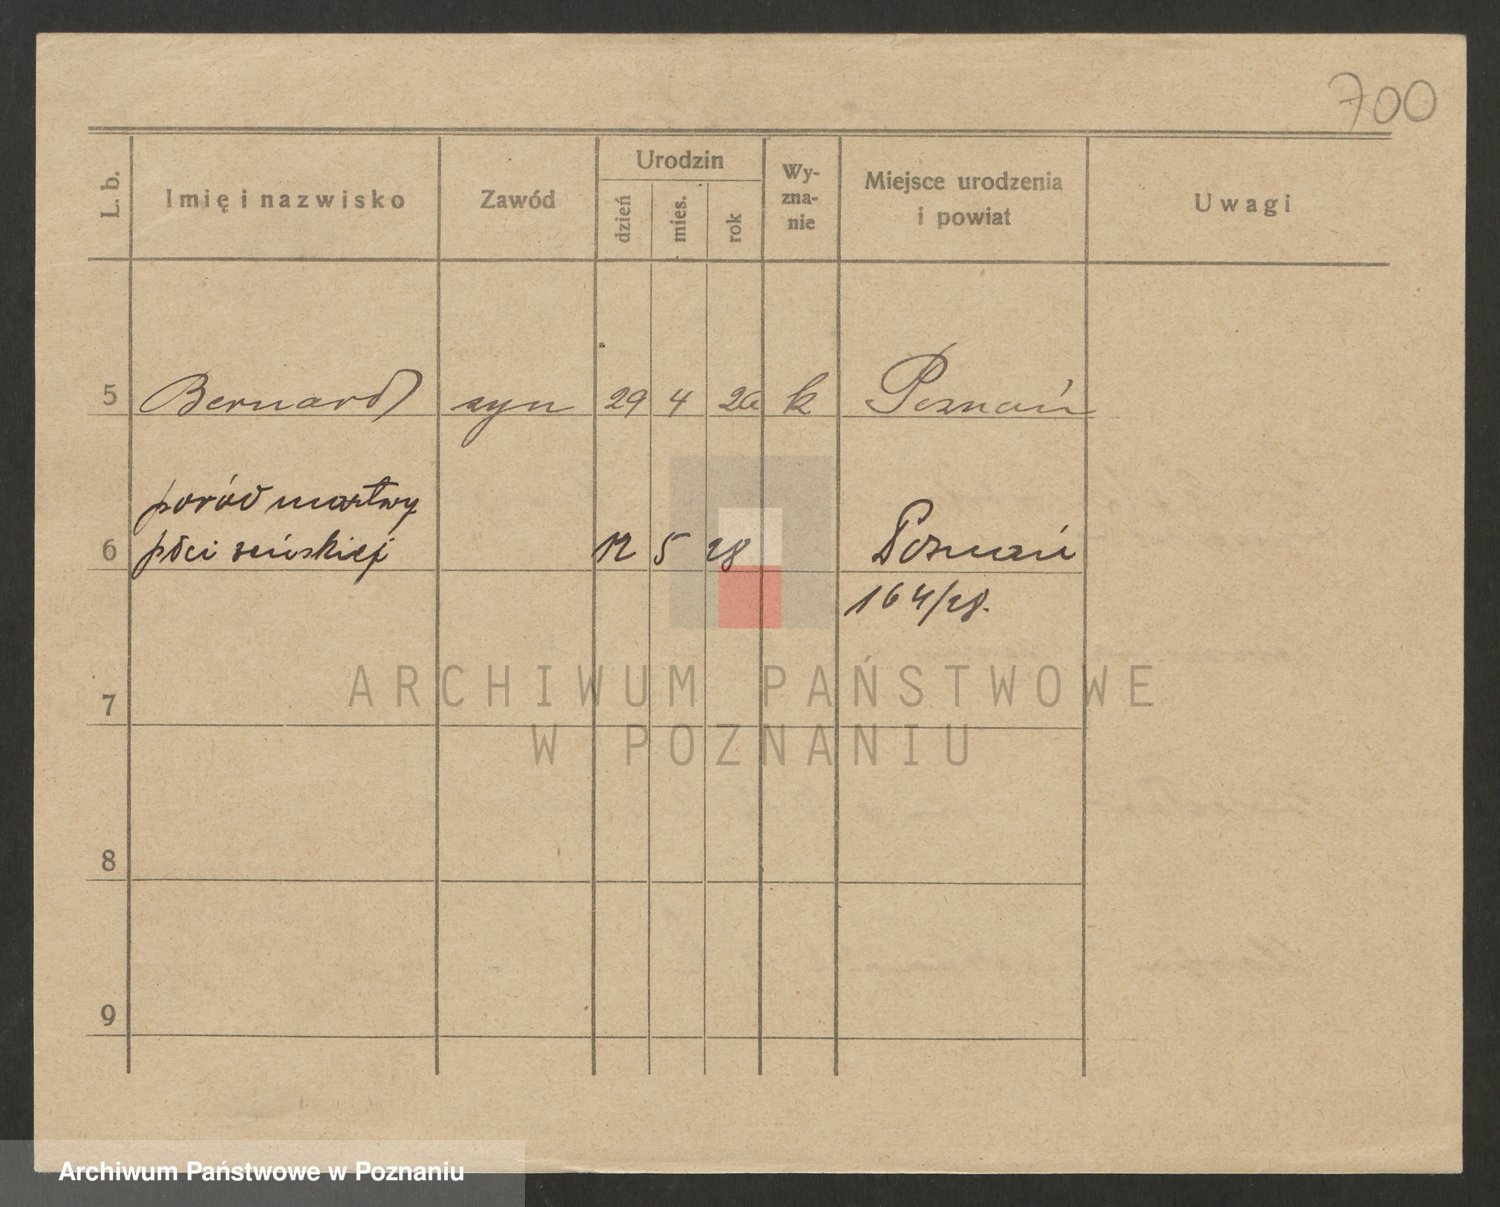 700
L. b.
Imię i nazwisko
Zawód
Urodzin
dzień
mies.
rok
Wy-
zna-
nie
Miejsce urodzenia
i powiat
Uwagi
5 Bernard syn 29 4 26 k Poznań
poród martwy
6 płci żeńskiej 12 5 28 Poznań
164/28.
ARCHIWUM PAŃSTWOWE
7
W POZNANIU
8
9
Archiwum Państwowe w Poznaniu